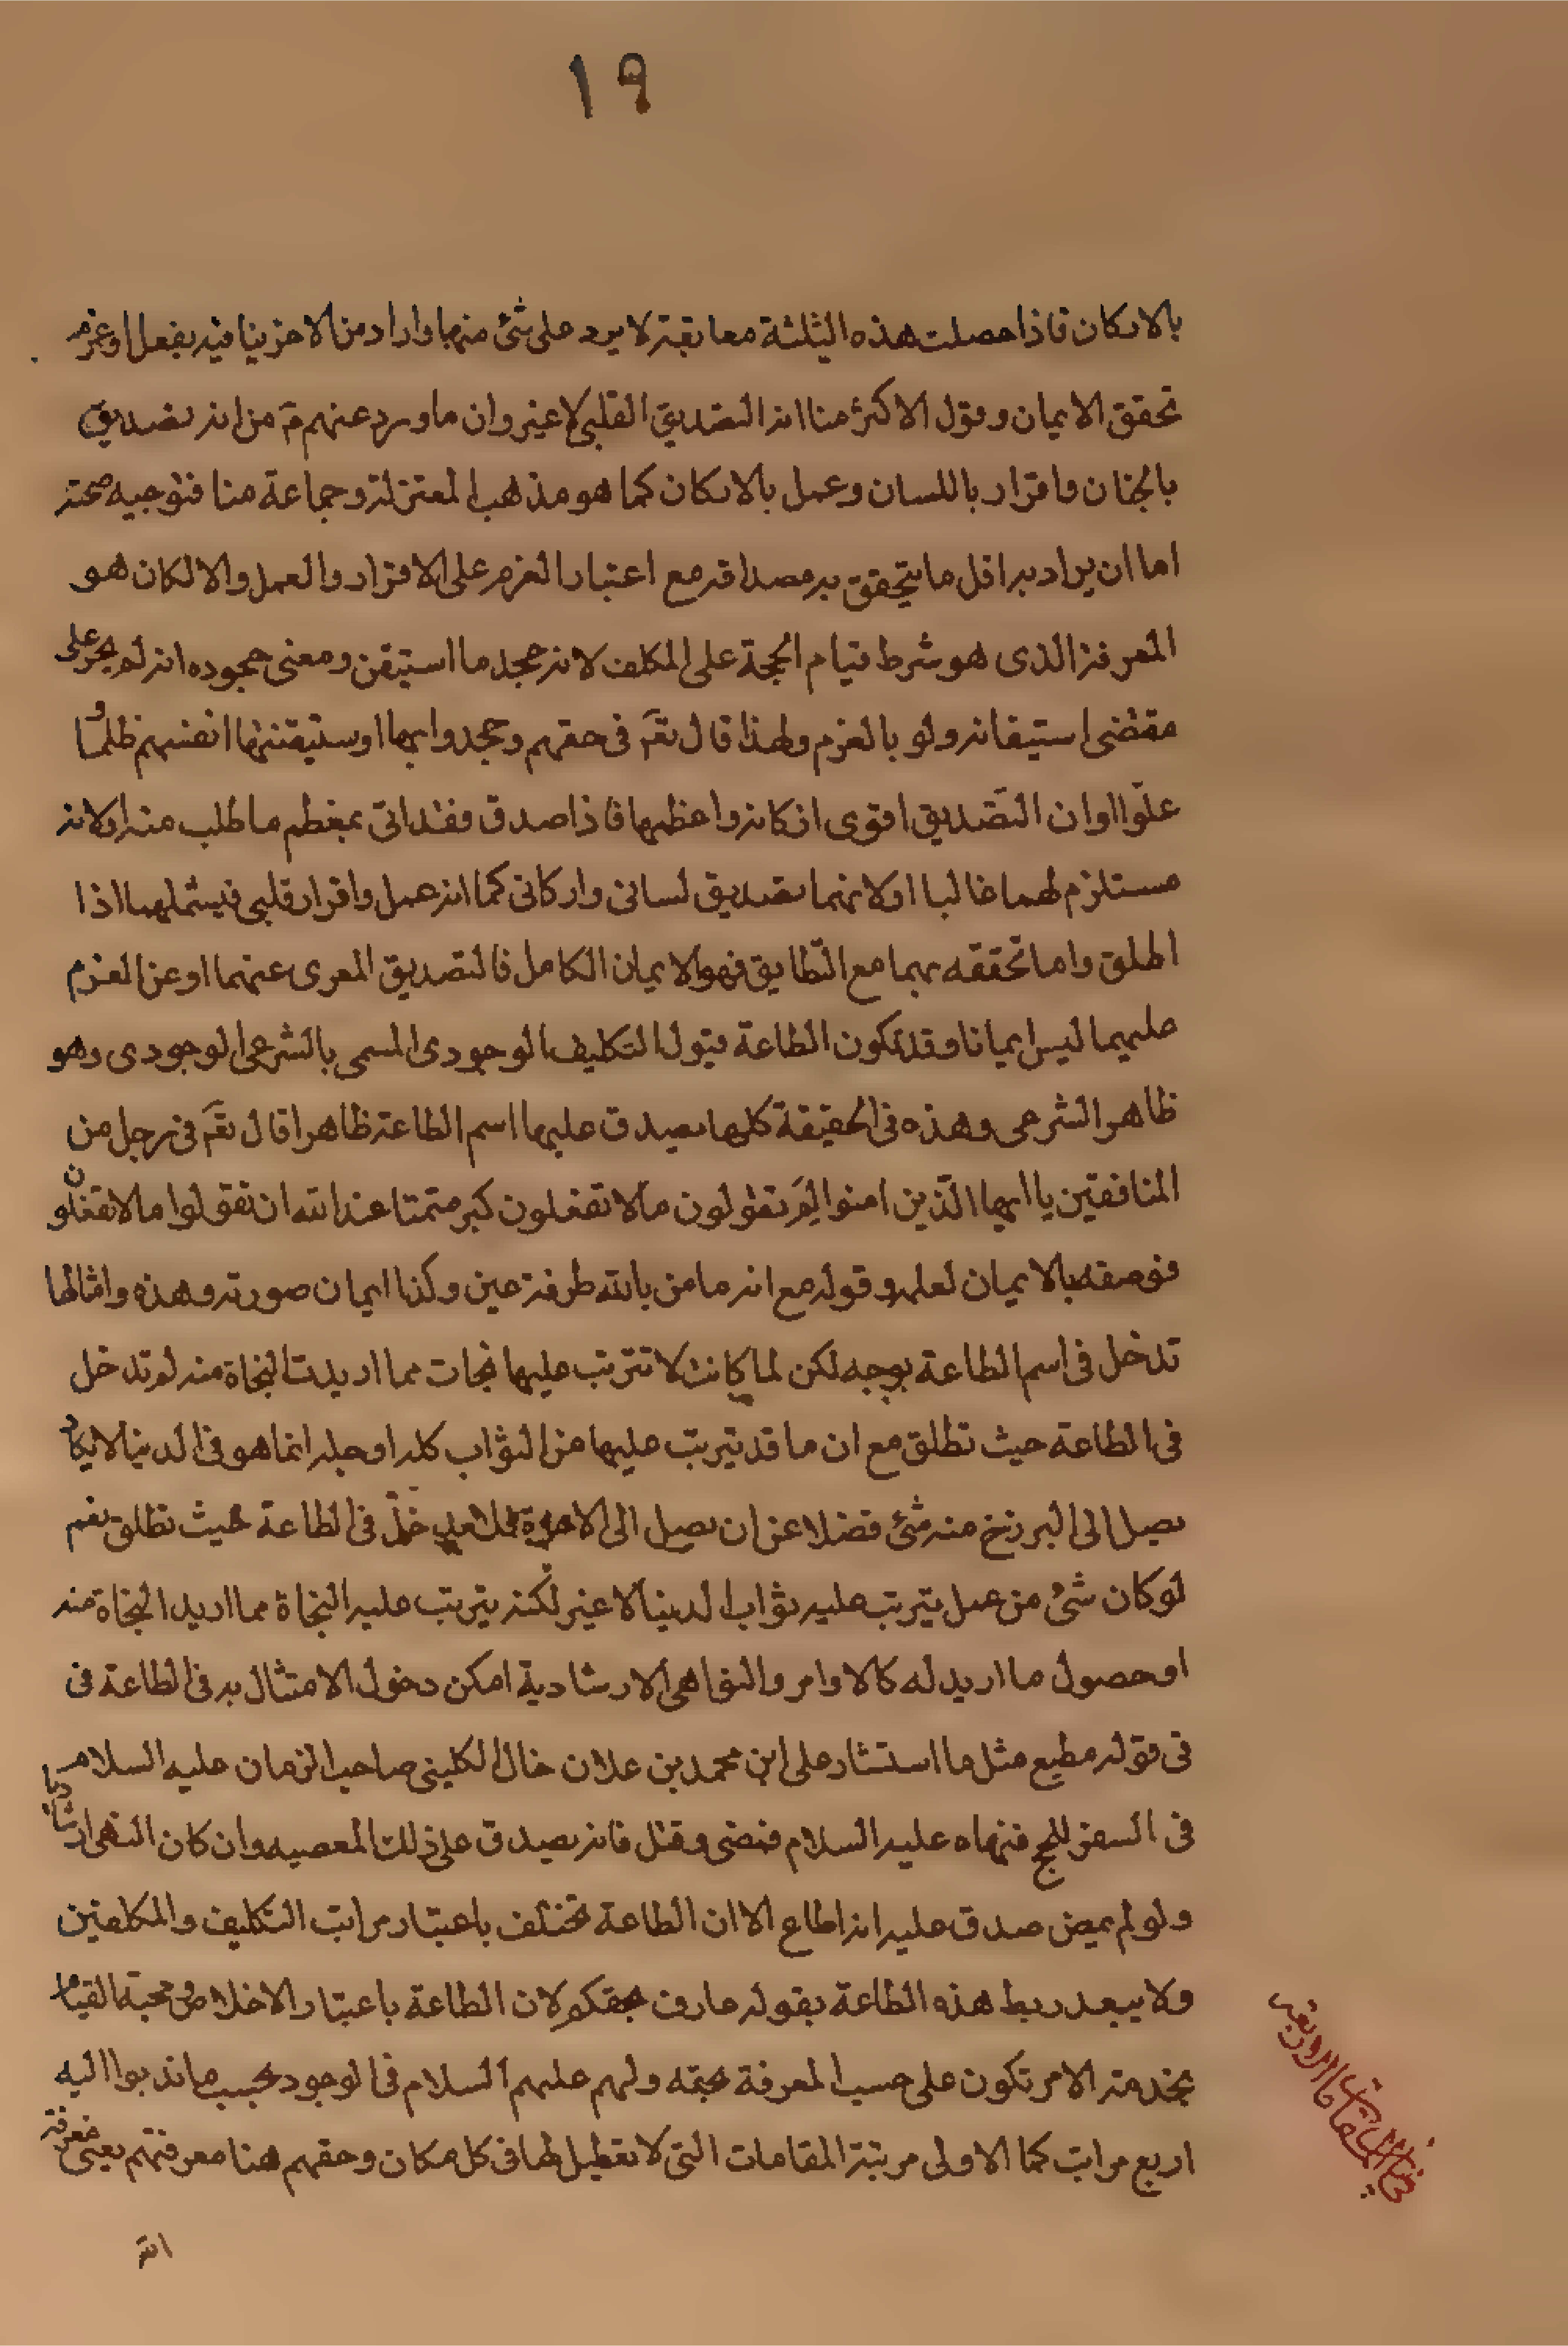 ١٩
بالاركان فاذا حصلت هذه الثلثة معا بقبة لا يرد على شئ منها واراد من الاخر ينافيه بفعل او عزم
تحقق الايمان وقول الاكثر منا انه التصديق القلبى لا غير وان ما ورد عنهم مّ من انه تصديق
بالجنان واقرار باللسان وعمل بالاركان كما هو مذهب المعتزلة وجماعة منا فتوجيه صحته
اما ان يراد به اقل ما يتحقق به مصداقه مع اعتبار العزم على الاقرار والعمل والا لكان هو
المعرفة الذى هو شرط قيام الحجة على المكلف لانه جحد ما استيقن ومعنى جحوده انه لم يجر على
مقتضى استيقانه ولو بالعزم ولهذا قال تعّم فى حقهم وجحدوا بها اوستيقنتها انفسهم ظلما و
علوّا او ان التصديق اقوى اركانه واعظمها فاذا صدق فقد اتى بمعظم ما طلب منه او لانه
مستلزم لهما غالبا او لانهما تصديق لسانى واركانى كما انه عمل واقرار قلبى فيشملهما اذا
اطلق واما تحققه بهما مع التّطابق فهو الايمان الكامل فالتصديق المعرى عنهما او عن العزم
عليهما ليس ايمانا وقد تكون الطاعة قبول التكليف الوجودى المسمى بالشرعى الوجودى وهو
ظاهر الشرعى وهذه فى الحقيقة كلها يصدق عليها اسم الطاعة ظاهرا قال تعّم فى رجل من
المنافقين يا ايها الّذين امنوا لِمَ تقولون ما لا تفعلون كبر مقتا عند الله ان تقولوا ما لا تفعلون
فوصفه بالايمان لعلمه وقوله مع انه ما من بالله طرفة عين وكذا ايمان صورته وهذه وامثالها
تدخل فى اسم الطاعة بوجه لكن لما كانت لا تترتب عليها نجات مما اريدت النجاة منه لم تدخل
فى الطاعة حيث تطلق مع ان ما قد يترتب عليها من الثواب كله او جله انما هو فى الدنيا لا يكاد
يصل الى البرزخ منه شئ فضلا عن ان يصل الى الاخرة فلا يدخل فى الطاعة حيث تطلق نعم
لو كان شئ من عمل يترتب عليه ثواب الدنيا لا غير لكنه يترتب عليه النجاة مما اريد النجاة منه
او حصول ما اريد له كالاوامر والنواهى الارشادية امكن دخول الامتثال به فى الطاعة فى
فى قوله مطيع مثل ما استشار على ابن محمد بن علان خال الكلينى صاحب الزمان عليه السلام
فى السفر للحج فنهاه عليه السلام فمضى وقتل فانه يصدق على ذلك المعصيه وان كان النهى ارشاديا
ولو لم يمض صدق عليه انه اطاع الا ان الطاعة تختلف باعتبار مراتب التكليف والمكلفين
ولا يبعد ربط هذه الطاعة بقوله عارف بحقكم لان الطاعة باعتبار الاخلاص ومحبة القيام
بخدمته الامر تكون على حسب المعرفة بحقه ولهم عليهم السلام فى الوجود بحسب ما ندبوا اليه
اربع مراتب كما الاولى مرتبة المقامات التى لا تعطيل لها فى كل مكان وحقهم هنا معرفتهم يعنى معرفة
الله